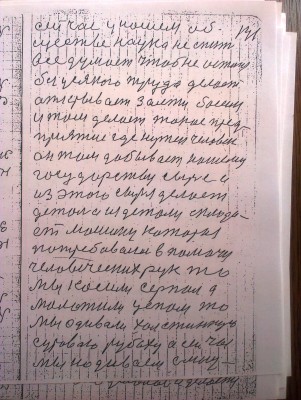 сичас у ношем об
141
ществе наука не спит
все думает чтоб не
без цяского труда делает
открывает
и том делает такое пред
приятие где нужен человек
он там добывает нашему
государству сырье и
из этого сырья делает
детали из деталей
ет машину которая
потребовала в помочи
человеческих рук то
мы косили серпом а
молотили цепом то
мы одивали холстинную
суровою рубаху а сичас
мы надиваем